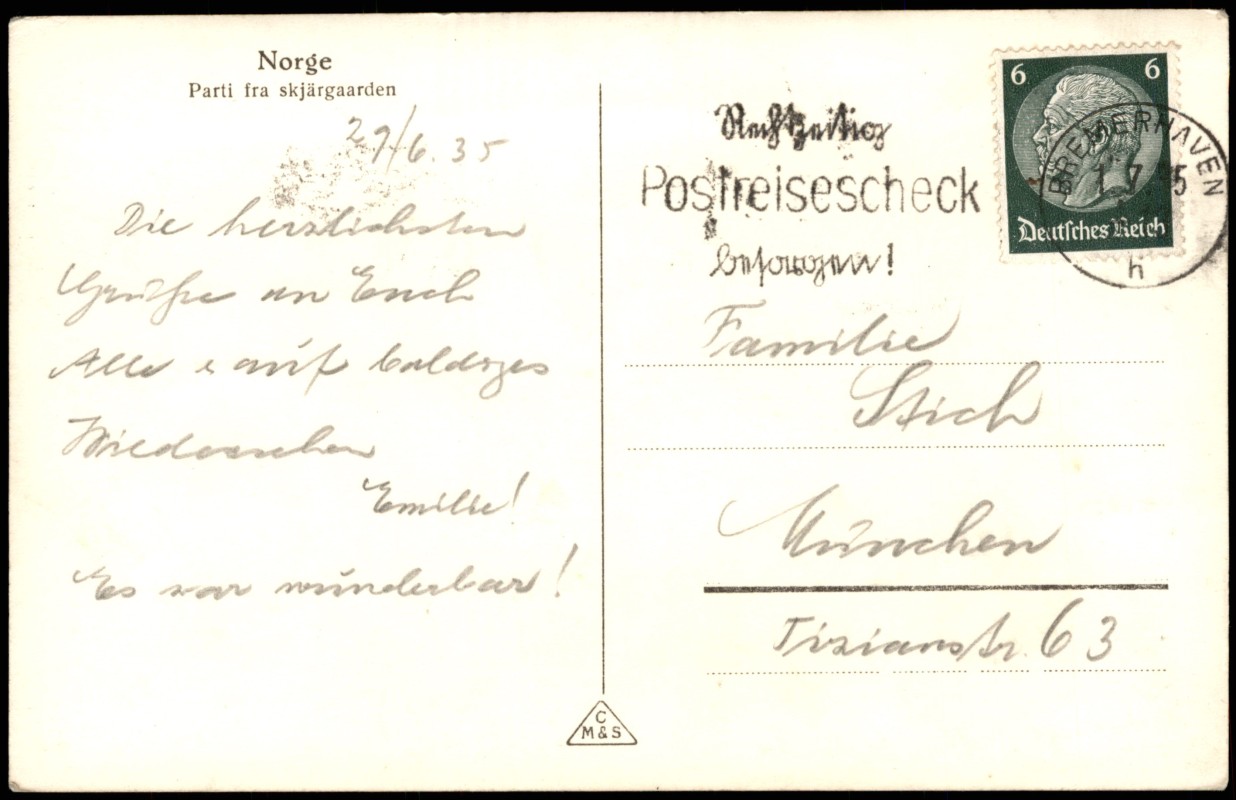 Norge
Parti fra skjärgaarden
29/6.35
Die herzlichsten
Grüße an Euch
Alle & auf baldiges
Wiedersehen
Emilie!
Es war wunderbar!
C
M&S
Rechtzeitig
Postreisescheck
besorgen!
6 6
Deutsches Reich
BREMERHAVEN
1.7.35
h
Familie
Stich
München
Tizianstr. 63